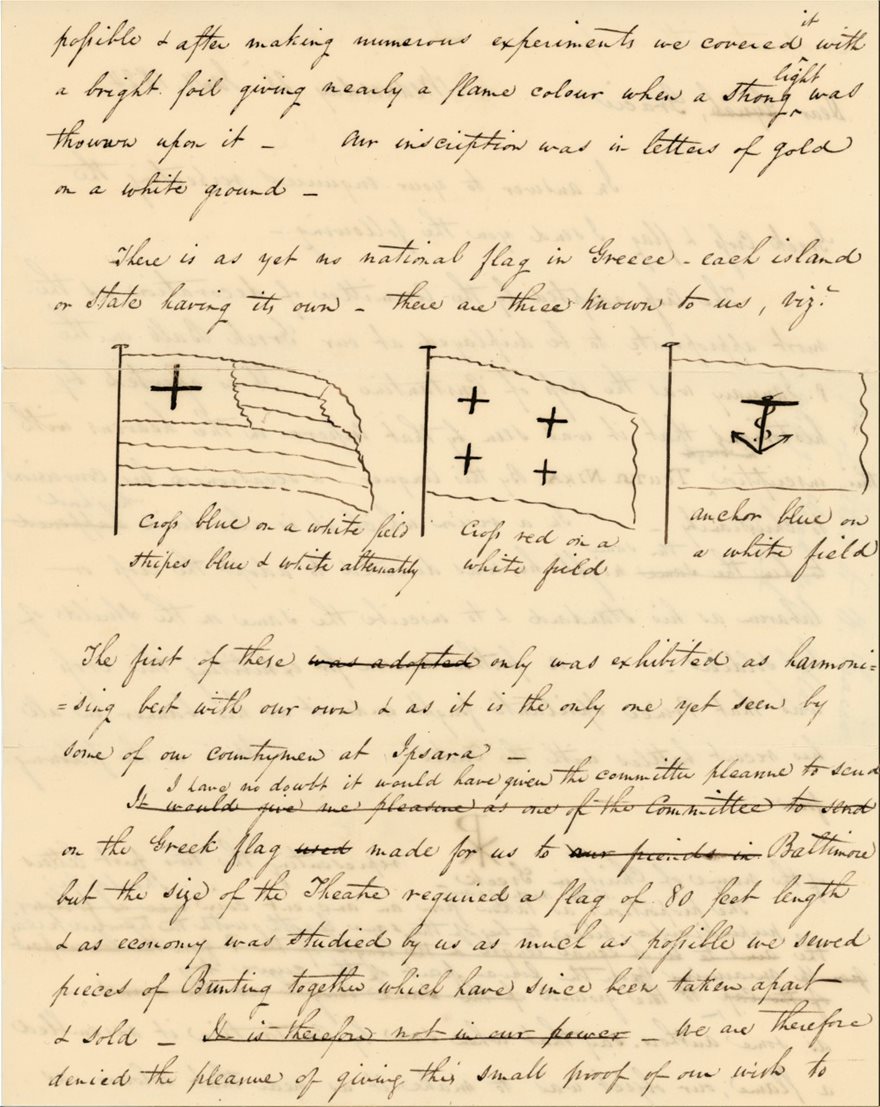 possible & after making numerous experiments we covered it with
a bright foil giving nearly a flame colour when a strong light was
thowwn upon it – Our inscription was in letters of gold
on a white ground –
There is as yet no national flag in Greece – each island
or State having its own – there are three known to us, viz:
Cross blue on a white field
stripes blue & white alternately
Cross red on a
white field
anchor blue on
a white field
The first of these was adopted only was exhibited as harmoni=
=sing best with our own & as it is the only one yet seen by
some of our countrymen at Ipsara –
I have no doubt it would have given the committee pleasure to send
It would give me pleasure as one of the Committee to send
on the Greek flag used made for us to our friends in Baltimore
but the size of the Theatre required a flag of 80 feet length
& as economy was studied by us as much as possible we sewed
pieces of Bunting together which have since been taken apart
& sold – It is therefore not in our power – We are therefore
denied the pleasure of giving this small proof of our wish to